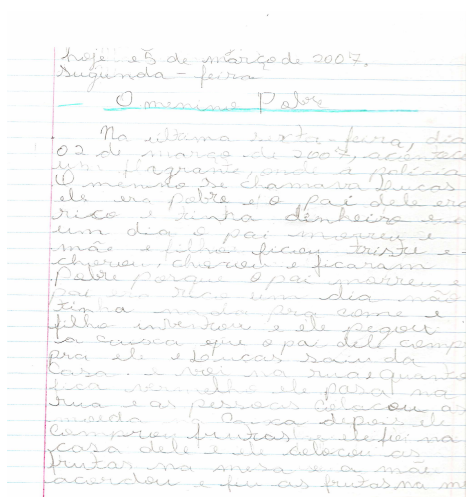 hoje é 5 de março de 2007.
Sugunda - feira
O menino Pobre
Na última sexta-feira, dia
02 de março de 2007, acontec
um flagrante, onde a polícia
O menino se chamava Lucas
ele era pobre e o pai dele era
rico e tinha dinheiro e
um dia o pai morreu e
mãe e filho ficou triste e
chorou, chorou e ficaram
Pobre porque o pai morreu e
pai era rico um dia não
tinha nada pra come e
filho inventou e ele pegou
a caixa que o pai dele comp
pra ele e Loucas saiu da
casa. e voi na rua e quanto
fica vermelho ele pasa na
rua e as pessoas colocou as
moeda caixa depois ele
comprou frutas e ele foi na
casa dele e ele colocou as
frutas na mesa e a mãe
acordou e as frutas na m